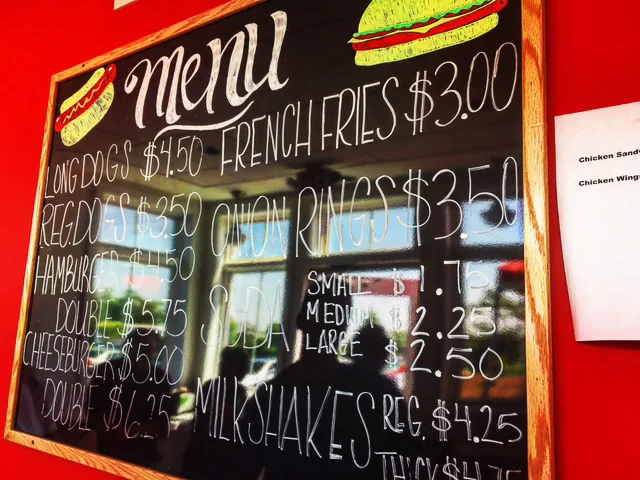 Menu
LONG DOGS $4.50
REG. DOGS $3.50
HAMBURGER $4.50
DOUBLE $5.75
CHEESEBURGER $5.00
DOUBLE $6.25
FRENCH FRIES $3.00
ONION RINGS $3.50
SODA
SMALL $1.75
MEDIUM $2.25
LARGE $2.50
MILKSHAKES REG. $4.25
THICK
Chicken
Chicken